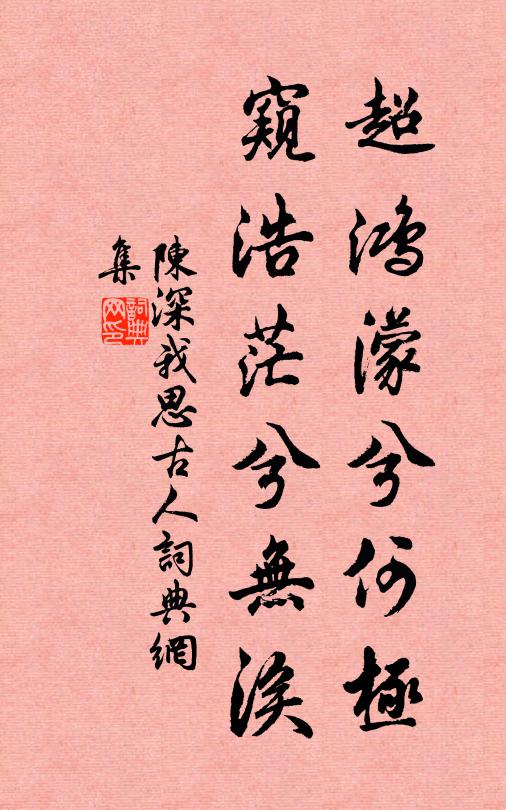 超鴻濛兮何極
窺浩茫兮無涘
陳深我思古人詞典網
集
詞典网印